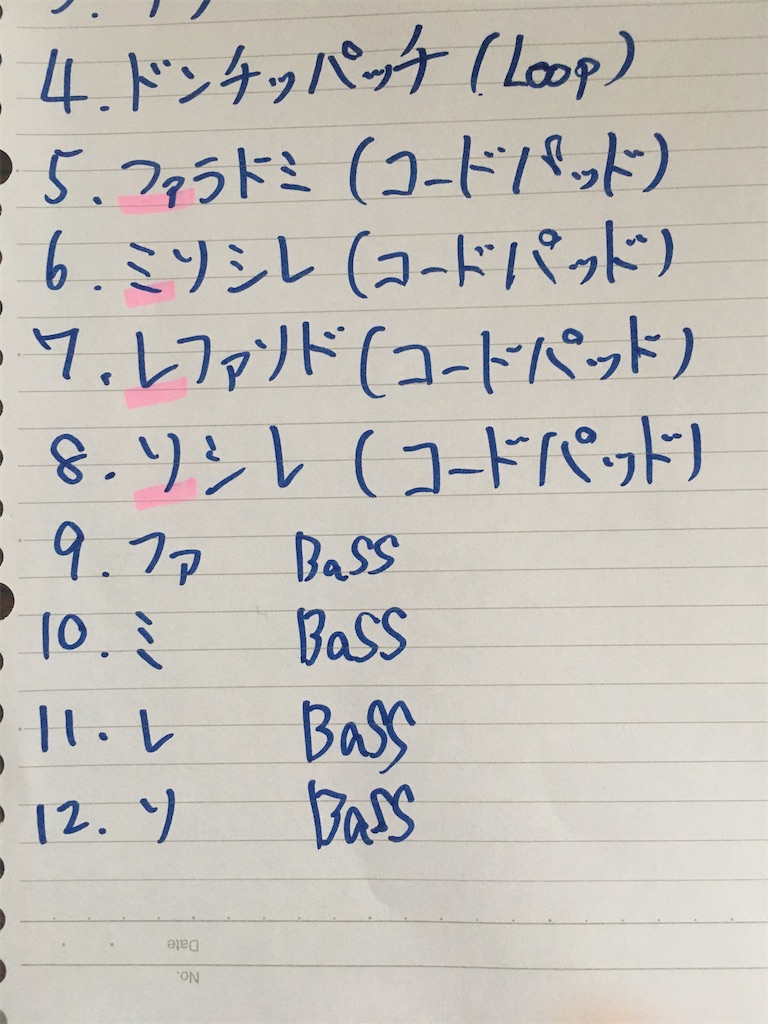 4. ドンチッパッチ (Loop)
5. ファラドミ (コードパッド)
6. ミソシレ (コードパッド)
7. レファソド (コードパッド)
8. ソシレ (コードパッド)
9. ファ Bass
10. ミ Bass
11. レ Bass
12. ソ Bass
Date
No.